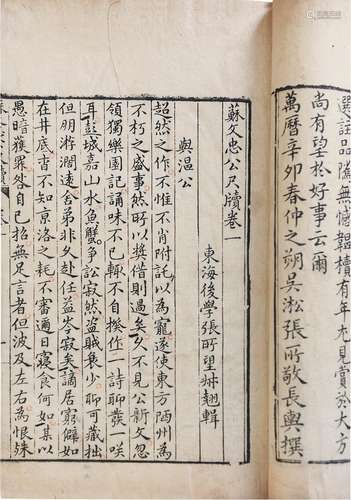 選註品隲無憾韞櫝有年允見賞於大方
尚有望於好事云爾
萬曆辛卯春仲之朔吳淞張所敬長輿撰
蘇文忠公尺牘卷一
東海後學張所望叔翹輯
與溫公
超然之作不惟不肖附託以為寵遂使東方陋州為
不朽之盛事然所以獎借則過矣久不見公新文忽
領獨樂園記誦味不已輒不自揆作一詩聊發一咲
耳彭城嘉山水魚蟹爭訟寂然盜賊衰少聊可藏拙
但朋遊闊遠舍弟非久赴任益岑寂矣謫居窮僻如
在井底杳不知京洛之耗不審邇日寢食何如某以
愚暗獲罪咎自己招無足言者但波及左右為恨殊